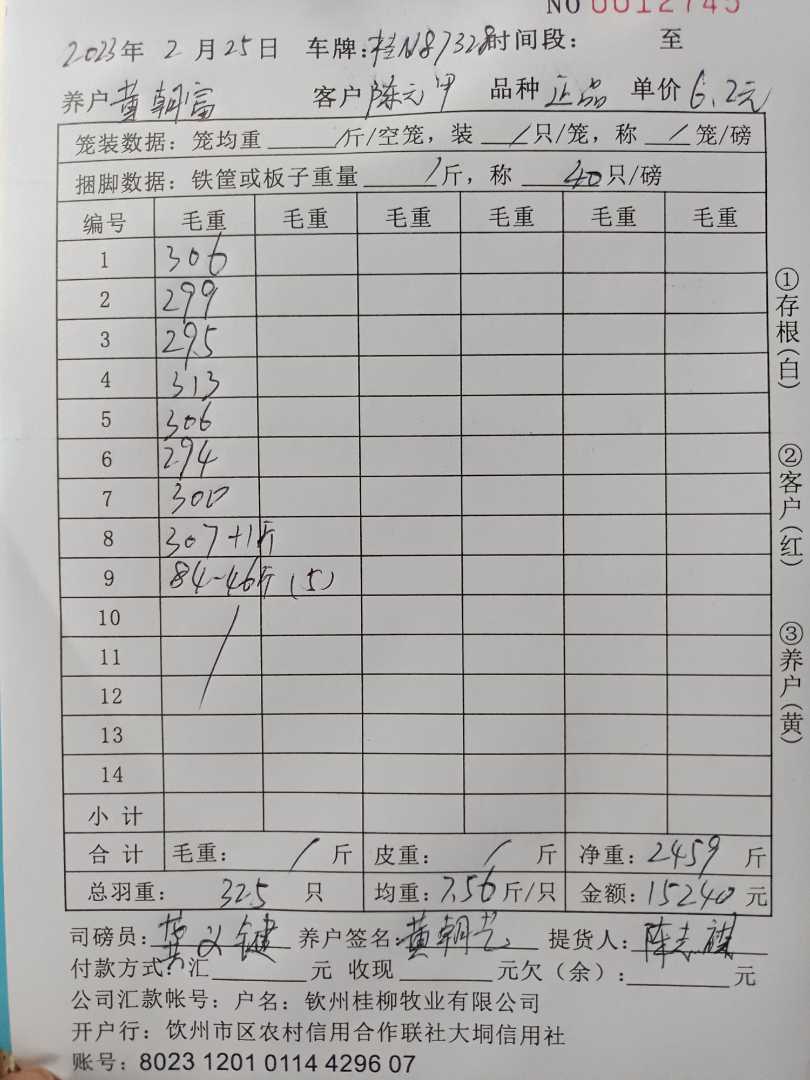 NO 0012745
2023年 2 月 25 日 车牌:桂N87328 时间段: 至
养户 黄朝富 客户 陈元甲 品种 正品 单价 6.2元
笼装数据: 笼均重 / 斤/空笼, 装 / 只/笼, 称 / 笼/磅
捆脚数据: 铁筐或板子重量 / 斤, 称 40 只/磅
编号 毛重 毛重 毛重 毛重 毛重 毛重
1 306
2 299
3 295
4 313
5 306
6 294
7 300
8 307+1斤
9 84-46斤 (5)
10 /
11
12
13
14
小 计
合 计 毛重: / 斤 皮重: / 斤 净重: 2459 斤
总羽重: 325 只 均重: 7.56 斤/只 金额: 15240 元
司磅员: 义键 养户签名: 黄朝 提货人: 陈志
付款方式: 汇 元 收现 元欠(余): 元
公司汇款帐号: 户名: 钦州桂柳牧业有限公司
开户行: 钦州市区农村信用合作联社大垌信用社
账号: 8023 1201 0114 4296 07
①存根(白)
②客户(红)
③养户(黄)